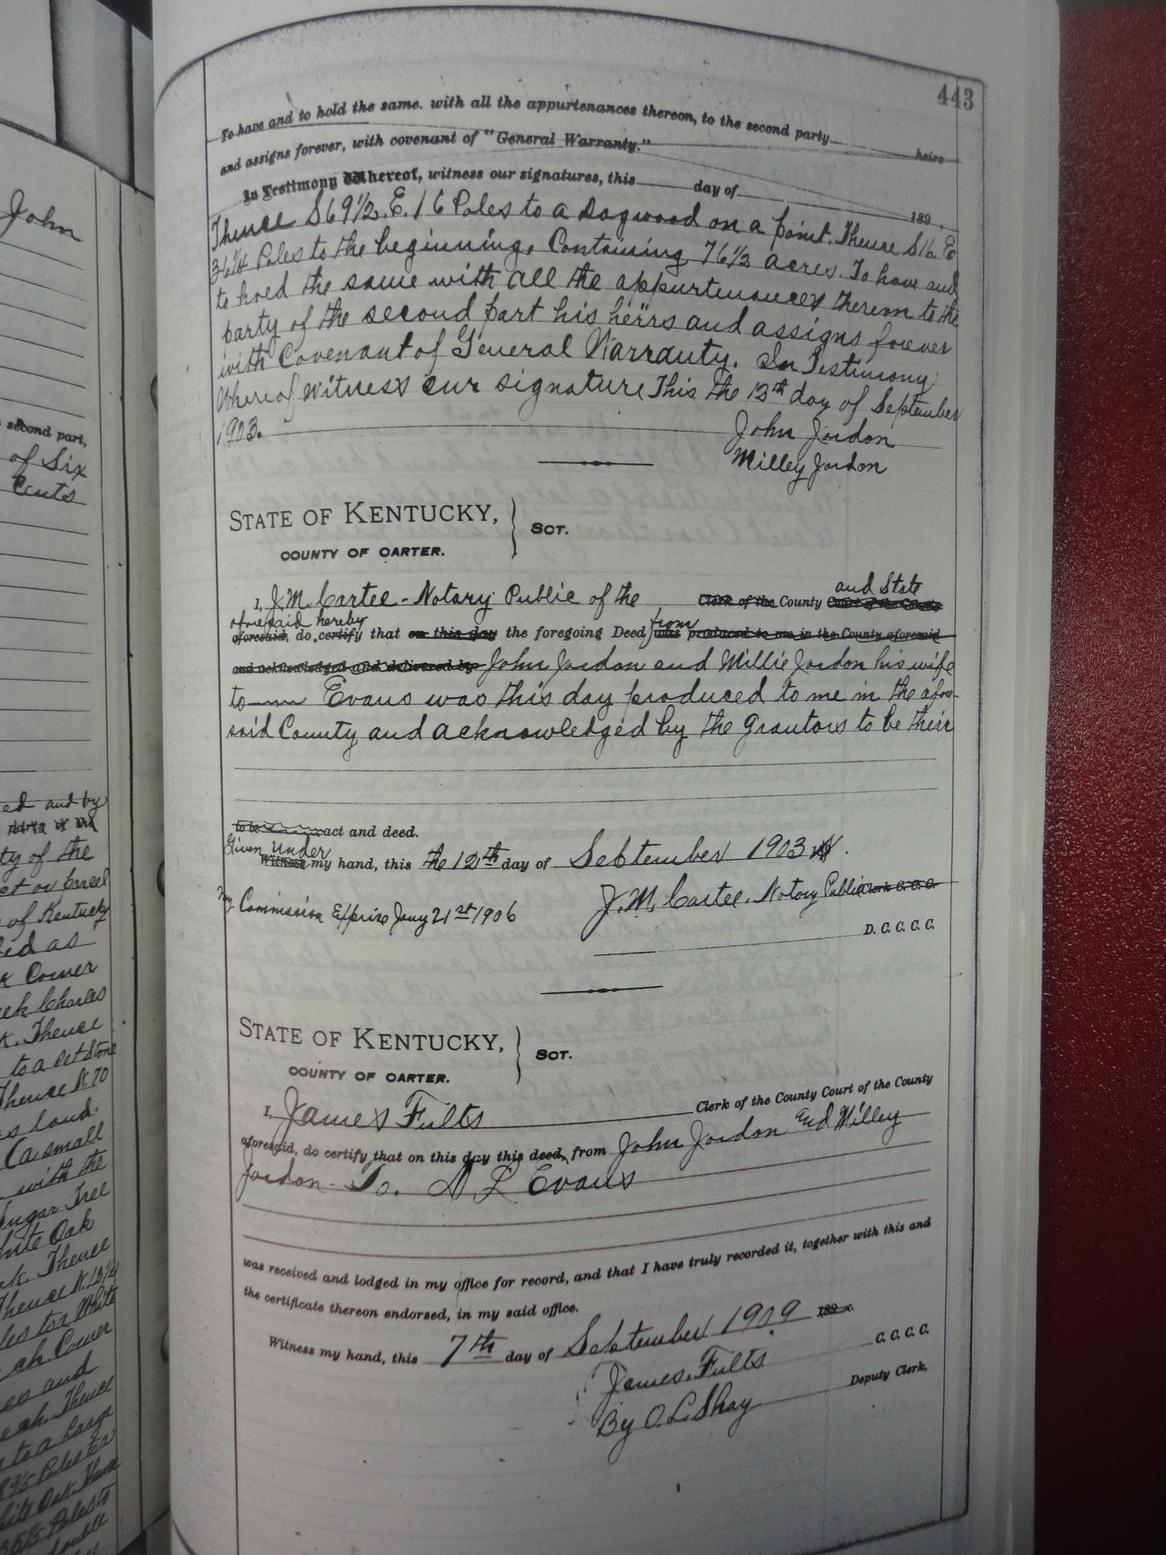 John
second part,
of Six
Cents
ed and by
ty of the
of Kentucky
ed as
Corner
Charles
k. Thence
to a set Stone
Thence N 70
land.
(a small
with the
Sugar Tree
White Oak
k. Thence
Thence N. 13 1/4
les to a White
ah. Corner
es and
ah. Thence
to a large
Poles to a
White Oak Thence
35 1/5 Poles to
double
443
To have and to hold the same. with all the appurtenances thereon, to the second party heirs
and assigns forever, with covenant of "General Warranty."
In Testimony Whereof, witness our signatures, this day of 189 .
Thence S69 1/2. E. 16 Poles to a Dogwood on a point. Thence S16. E
36 1/4 Poles to the beginning. Containing 76 1/2 acres. To have and
to hoed the same with all the appurtenances thereon to the
party of the second part his heirs and assigns forever
with Covenant of General Warranty. In Testimony
Whereof witness our signature This the 12th day of September
1903.
John Jordon
Milley Jordon
STATE OF KENTUCKY,
COUNTY OF CARTER.
SCT.
and State
I, J.M. Cartee - Notary Public of the Clerk of the County Court of the County
aforesaid hereby from
aforesaid, do certify that on this day the foregoing Deed was produced to me in the County aforesaid
and acknowledged and delivered by John Jordon and Millie Jordon his wife
to Evans was this day produced to me in the afore-
said County and acknowledged by the Grantors to be their
to be act and deed.
Given Under
Witness my hand, this the 12th day of September 1903
J. M. Cartee. Notary Public Clerk C. C. C.
My Commission Expires Jany 21st 1906
D. C. C. C.
STATE OF KENTUCKY,
COUNTY OF CARTER.
SCT.
I, James Fults Clerk of the County Court of the County
aforesaid, do certify that on this day this deed, from John Jordon and Milley
Jordon To. D L Evans
was received and lodged in my office for record, and that I have truly recorded it, together with this and
the certificate thereon endorsed, in my said office.
Witness my hand, this 7th day of September 1909 189
James. Fults C. C. C.
By O. L. Shay Deputy Clerk.